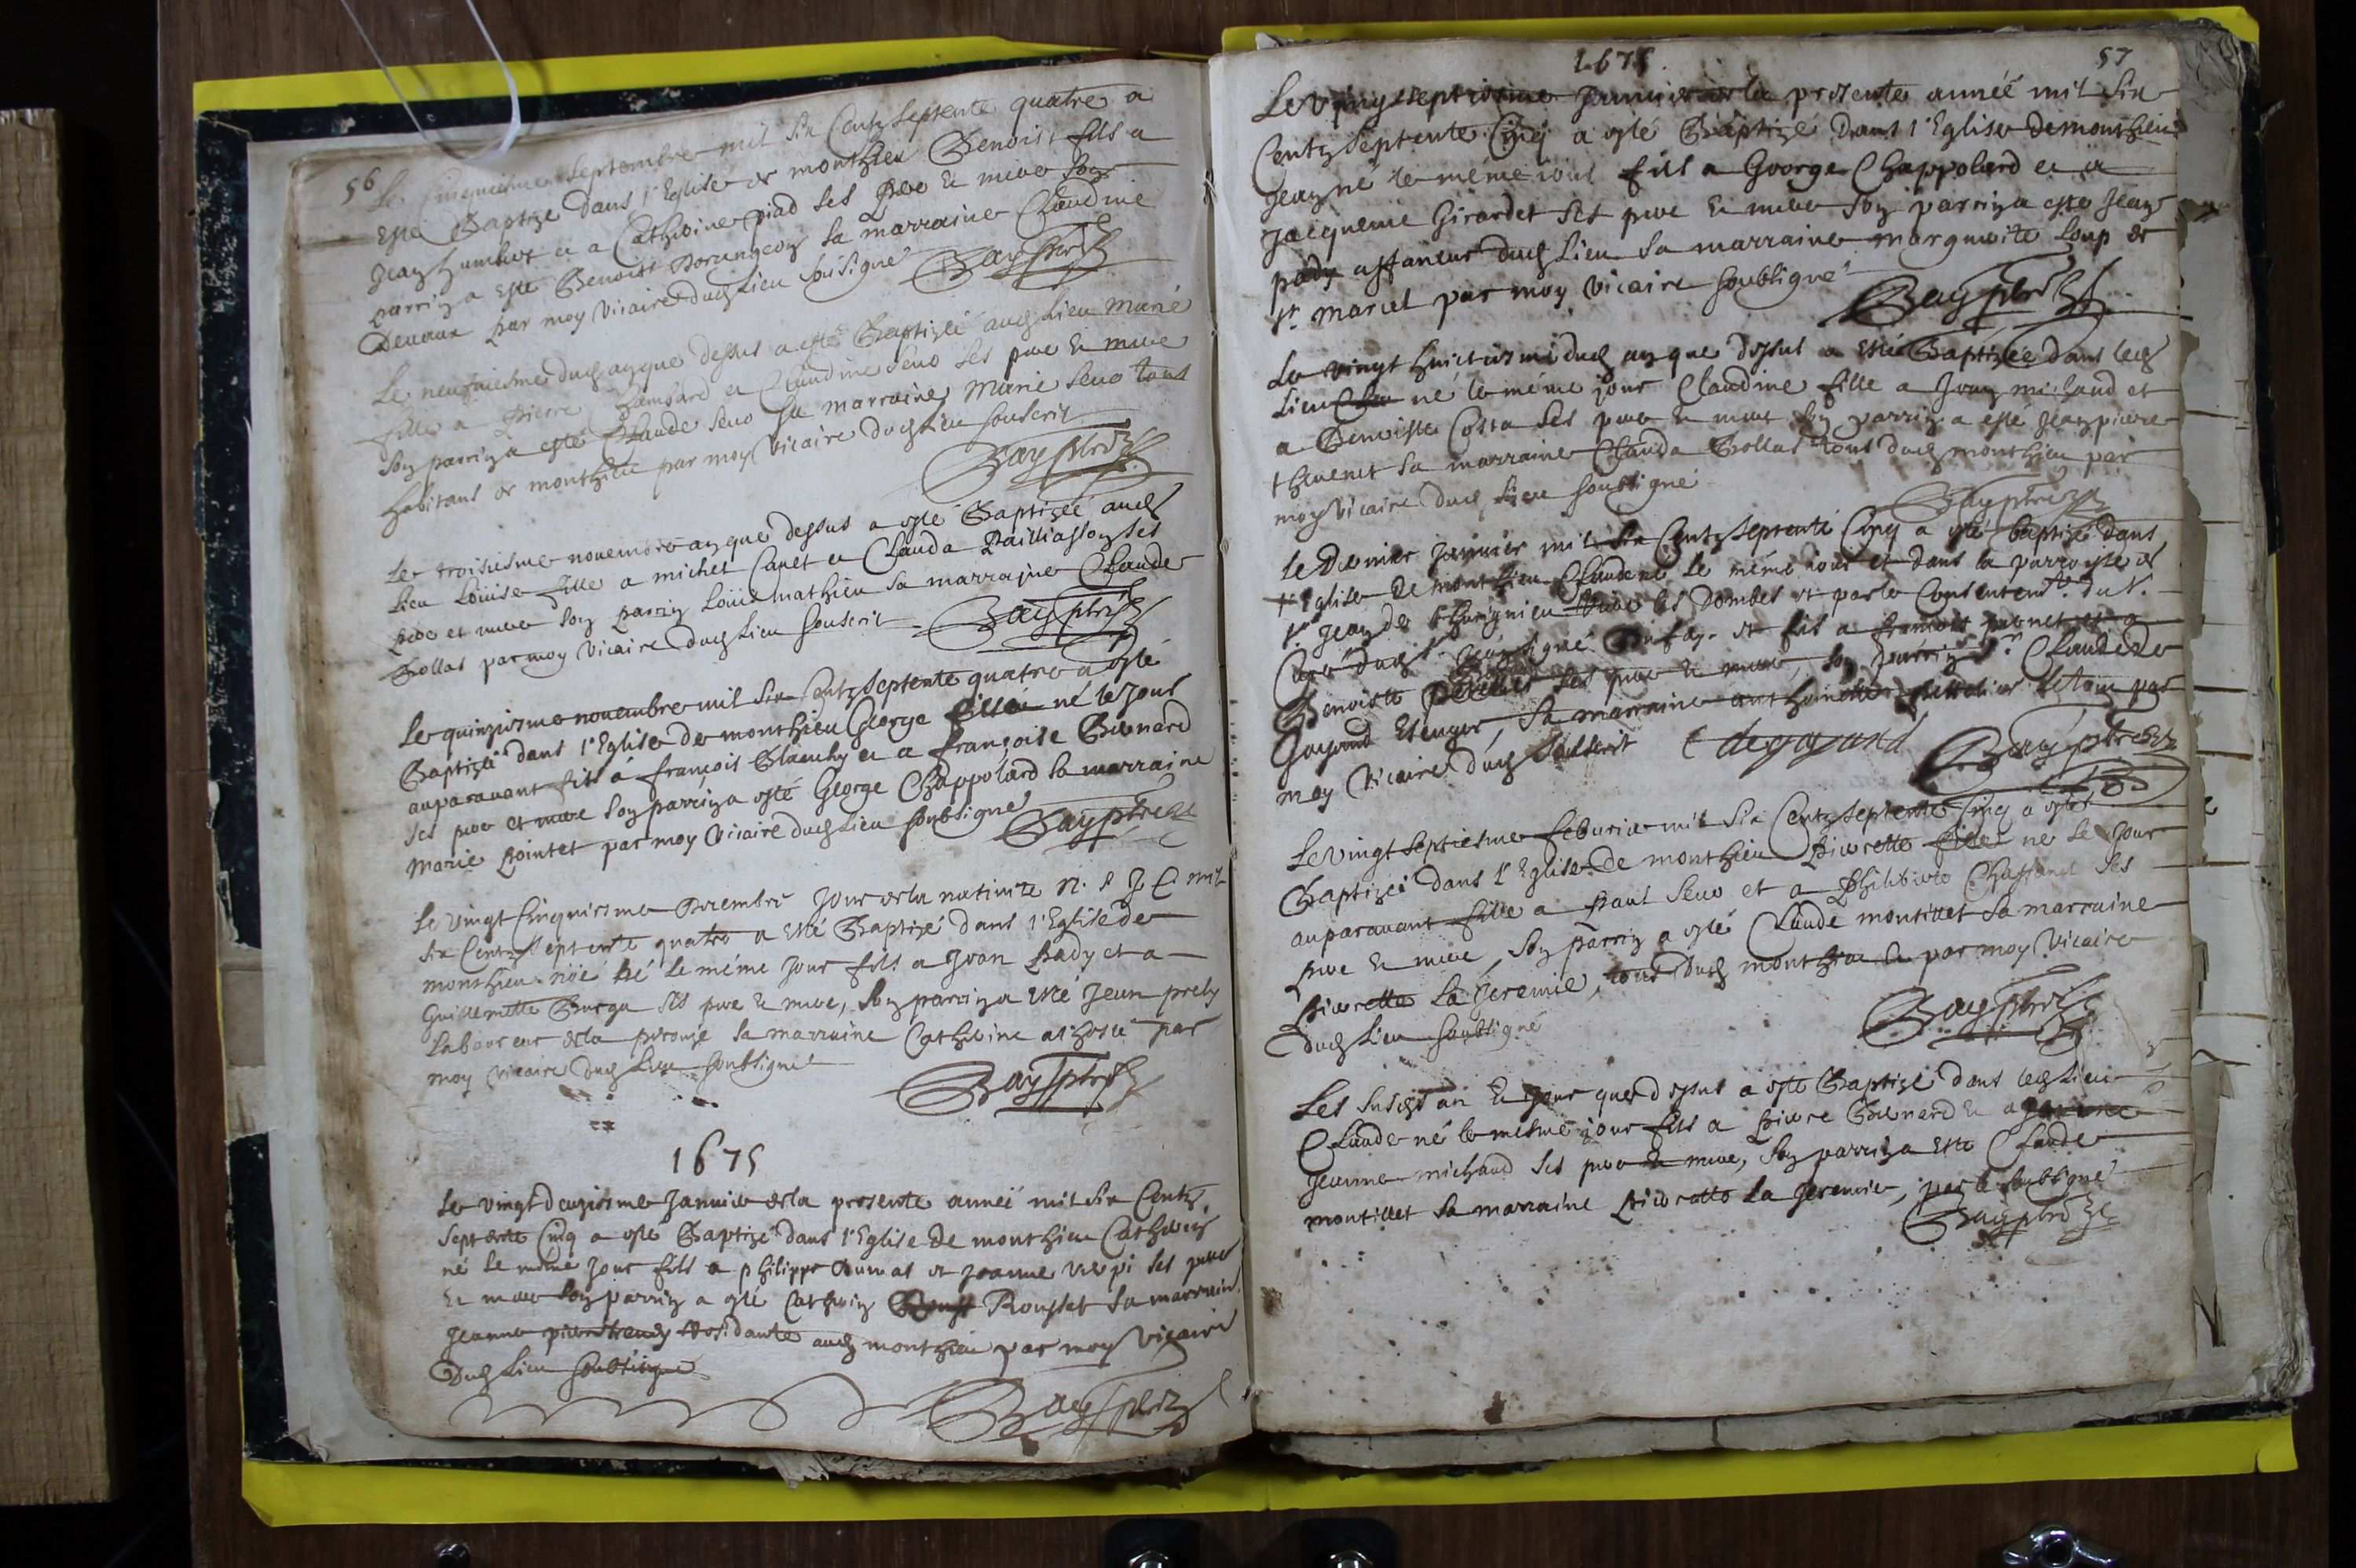 56
Le cinquiesme Septembre mil Six Centz Septente quatre a
esté Baptizé dans l'Eglise de monthieu Benoist fils a
Jean humbert et a Catherine piad ses Pere et mere Son
parrin a esté Benoist sa marraine Claudine
Devaux par moy Vicaire dud Lieu sousigné
Bay ptre
Le neufviesme dud an que dessus a esté Baptizée aud Lieu Marie
fille a Pierre Lambard et Claudine Seno ses pere et mere
Son parrin a esté Claude Seno sa marraine Marie Seno tous
habitans de monthieu par moy Vicaire dud Lieu souscrit
Bay ptre
Le troisiesme novembre an que dessus a esté Baptizée aud
Lieu Loüise fille a michel Canet et Clauda Pailliasson ses
pere et mere son parrin Loüis mathieu sa marraine Claude
Bollat par moy Vicaire dud Lieu souscrit
Bay ptre
Le quinziesme novembre mil Six Centz Septente quatre a esté
Baptizé dans l'Eglise de monthieu George né le Jour
auparavant fils a françois Blanchy et a françoise Besnard
ses pere et mere son parrin a esté George Chappolard sa marraine
Marie Pointet par moy Vicaire dud Lieu soubsigné
Bay ptre
Le vingt Cinquiesme Decembre Jour de la nativité N. S J C mil
Six Centz Septente quatre a esté Baptizé dans l'Eglise de
monthieu né le méme Jour fils a Jean Pady et a
Guillemette Burga ses pere et mere, Son parrin a esté Jean prely
Laboureur de la sa marraine Catherine par
moy vicaire dud Lieu soubsigné
Bay ptre
1675
Le vingt deuxiesme Janvier de la presente anneé mil Six Centz
Septente Cinq a esté Baptizé dans l'Eglise de monthieu Catherin
né le méme Jour fils a philippe Dumas et Jeanne ses pere
et mere Son parrin a esté Catherin Rousset sa marraine
Jeanne Residante aud monthieu par moy Vicaire
Dud Lieu soubsigné
Bay ptre
1675.
57
Le Vingt Septiesme Janvier de la presente année mil Six
Centz Septente Cinq a esté Baptizé Dans l'Eglise de monthieu
Jean né le méme jour fils a George Chappolard et a
Jacqueme Girardet ses pere et mere Son parrin a esté Jean
pady affaneur dud Lieu sa marraine marguerite Loup de
St marcel par moy Vicaire soubsigné
Bay ptre
Le vingt huictiesme dud an que dessus a esté Baptizée dans led
Lieu né le méme jour Claudine fille a Jean michaud et
a Benoiste Costa ses pere et mere Son parrin a esté Jean pierre
thevenet sa marraine Clauda Bollat tous dud monthieu par
moy Vicaire dud Lieu soubsigné
Bay ptre
Le Dernier Janvier mil Six Centz Septente Cinq a esté baptizé dans
l'Eglise de monthieu Claude né le méme jour et dans la parroisse de
St Jean de Thurignieu les Dombes et par le Consentemt. du S.
Curé dud St Jean signé et fils a françois et a
Benoiste ses pere et mere, Son parrin Sr. Claude de
Gayand Escuyer, Sa marraine anthoinette par
moy Vicaire dud souscrit C degayand Bay ptre
Le vingt Septiesme febvrier mil Six Centz Septente Cinq a esté
Baptizeé dans l'Eglise de monthieu Pierrette né le Jour
auparavant fille a Paul Seno et a Philiberte Chaffanel ses
pere et mere, Son parrin a esté Claude montillet sa marraine
Pierrette La Jeremie, tous dud monthieu et par moy Vicaire
dud Lieu soubsigné
Bay ptre
Les susdst an et jour que dessus a esté Baptizé dans led Lieu
Claude né le mesme jour fils a Pierre Besnard et a
Jeanne michaud ses pere et mere, Son parrin a esté Claude
montillet sa marraine Pierrette la Jeremie, par le soubsigné
Bay ptre